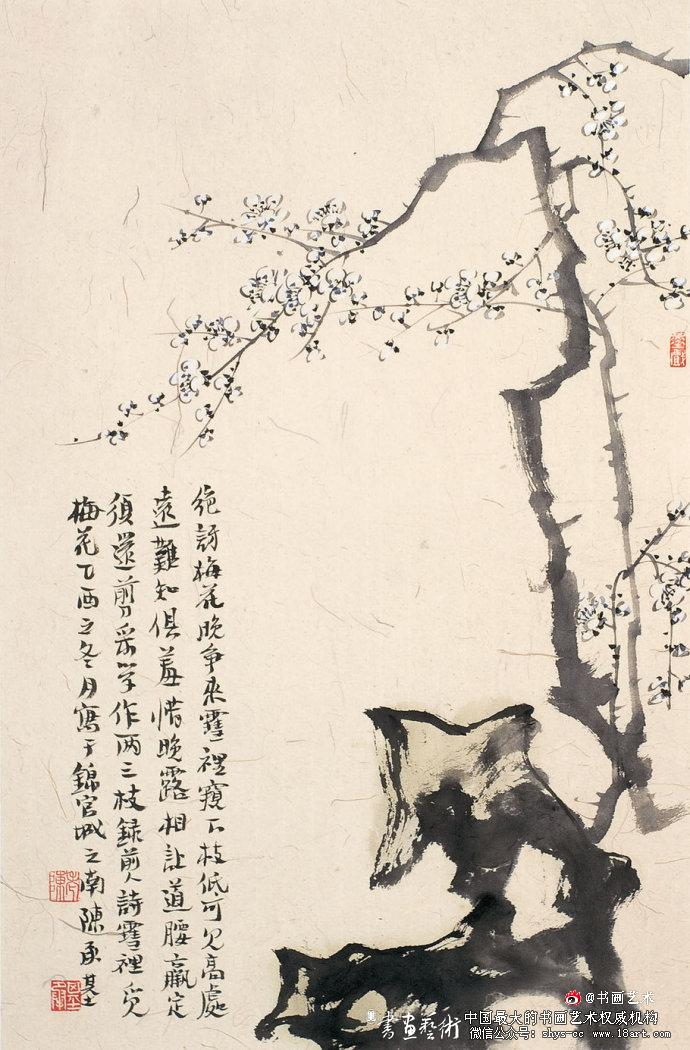 絶訝梅花晚争來雪裡窺下枝低可見高處
遠難知俱羞惜晚露相让道腰羸定
須還剪采学作两三枝録前人詩雪裡覓
梅花乙酉之冬月寫于錦官城之南陳承基
@书画艺术
中国最大的书画艺术权威机构
書畫藝術
微信公众号: shys-cc www.18art.com